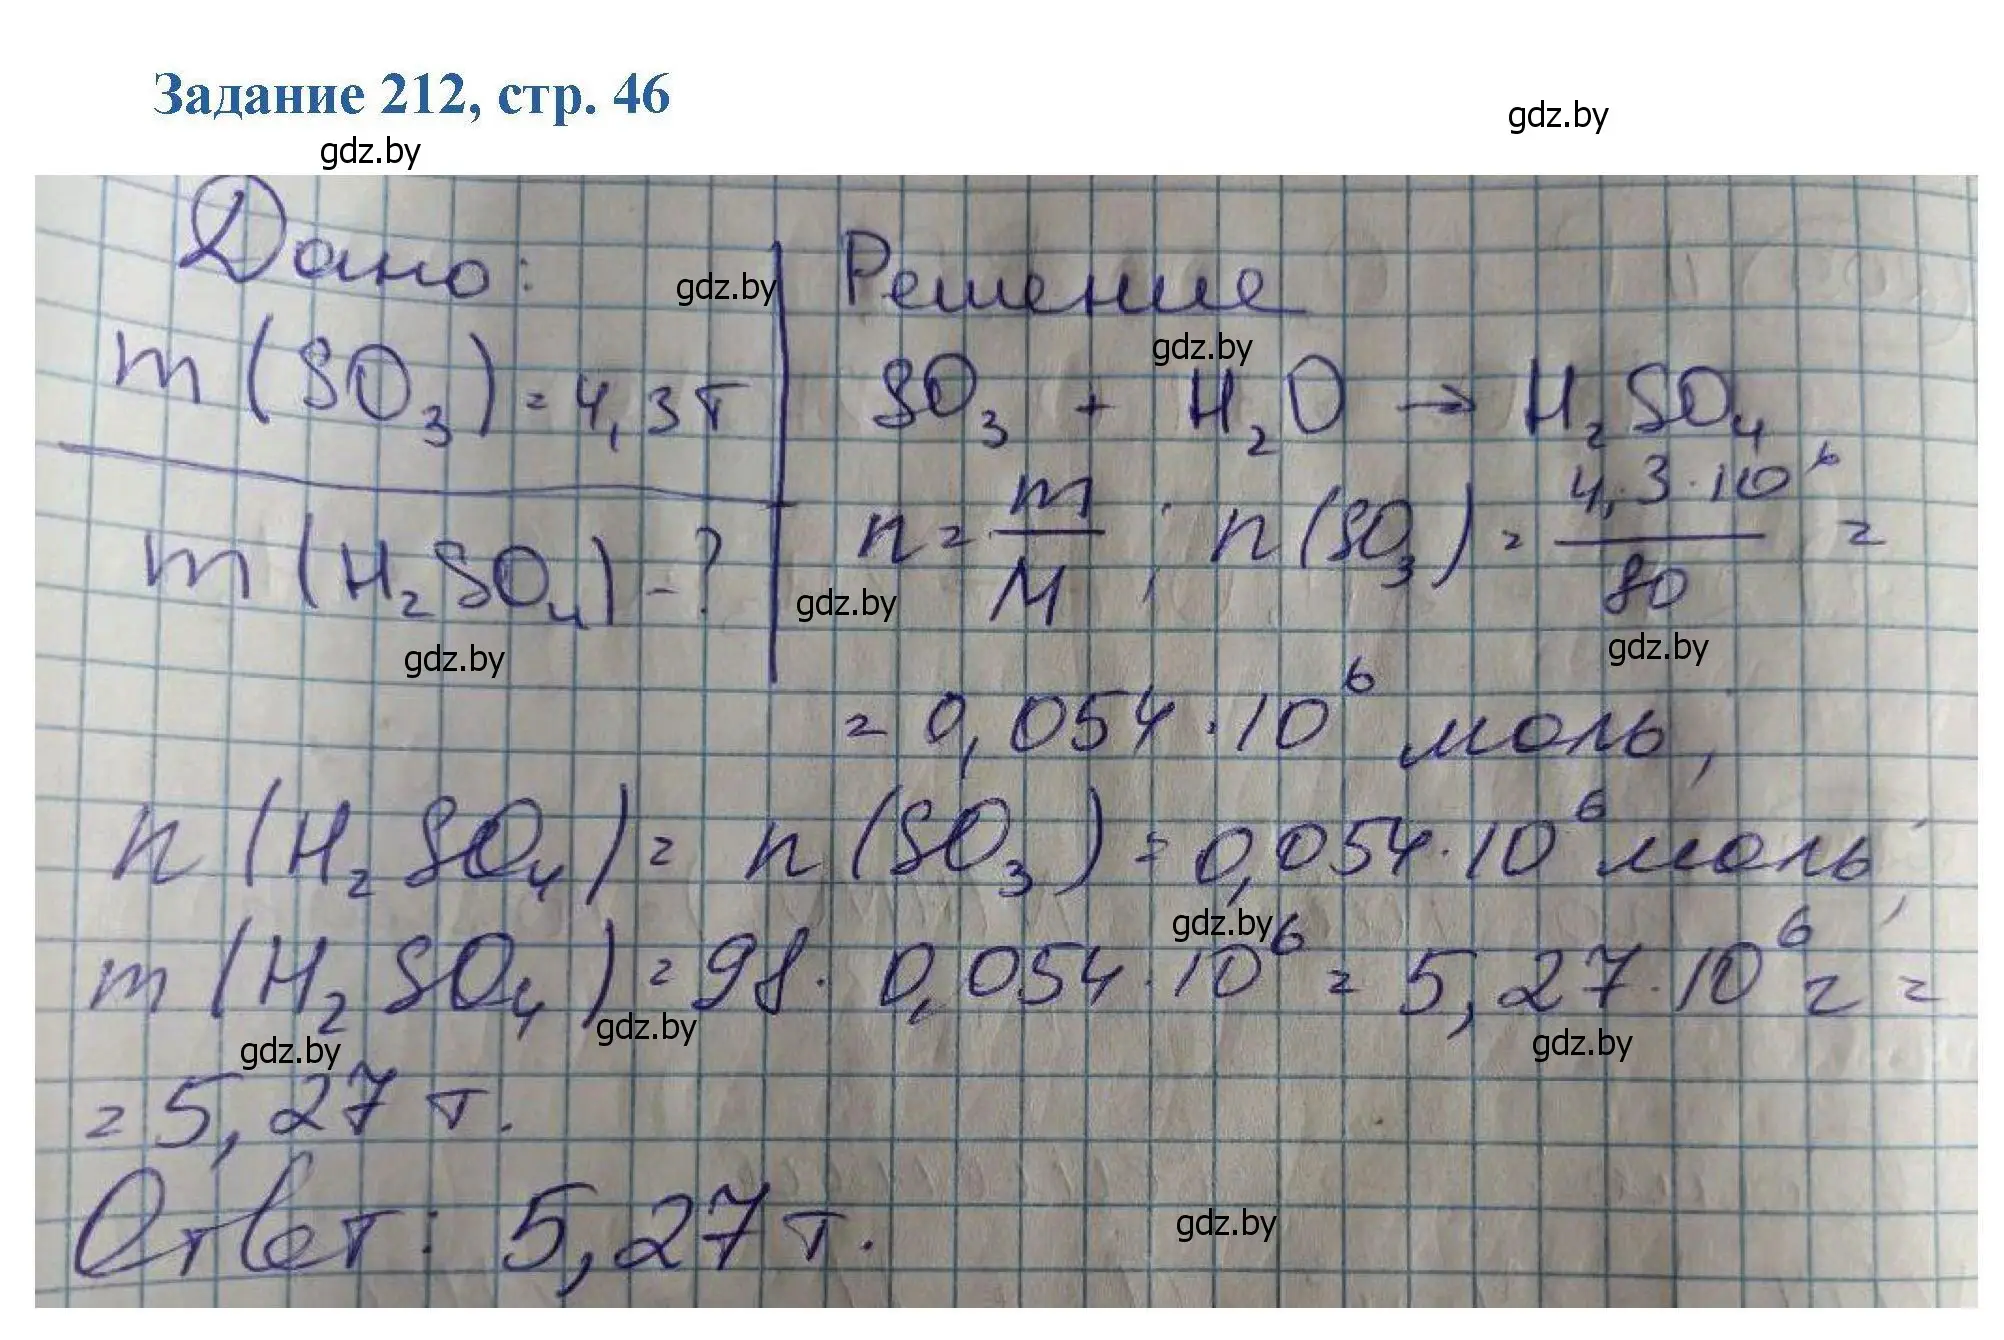 Задание 212, стр. 46
gdz.by
gdz.by
Дано:
gdz.by
m (SO₃) = 4,3 т
m (H₂SO₄) - ?
gdz.by
Решение
gdz.by
SO₃ + H₂O → H₂SO₄
n = m/M ; n (SO₃) = 4,3·10⁶/80 =
gdz.by
gdz.by
= 0,054·10⁶ моль;
n (H₂SO₄) = n (SO₃) = 0,054·10⁶ моль;
gdz.by
m (H₂SO₄) = 98·0,054·10⁶ = 5,27·10⁶ г =
gdz.by
gdz.by
gdz.by
= 5,27 т.
Ответ: 5,27 т.
gdz.by